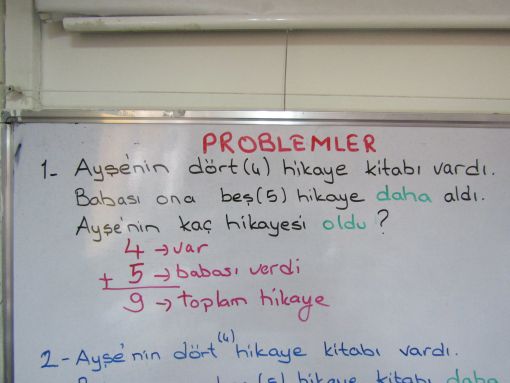 PROBLEMLER
1- Ayşe'nin dört (4) hikaye kitabı vardı.
Babası ona beş (5) hikaye daha aldı.
Ayşe'nin kaç hikayesi oldu ?
4 → var
+ 5 → babası verdi
9 → toplam hikaye
2- Ayşe'nin dört (4) hikaye kitabı vardı.
(5) hikaye kitabı daha